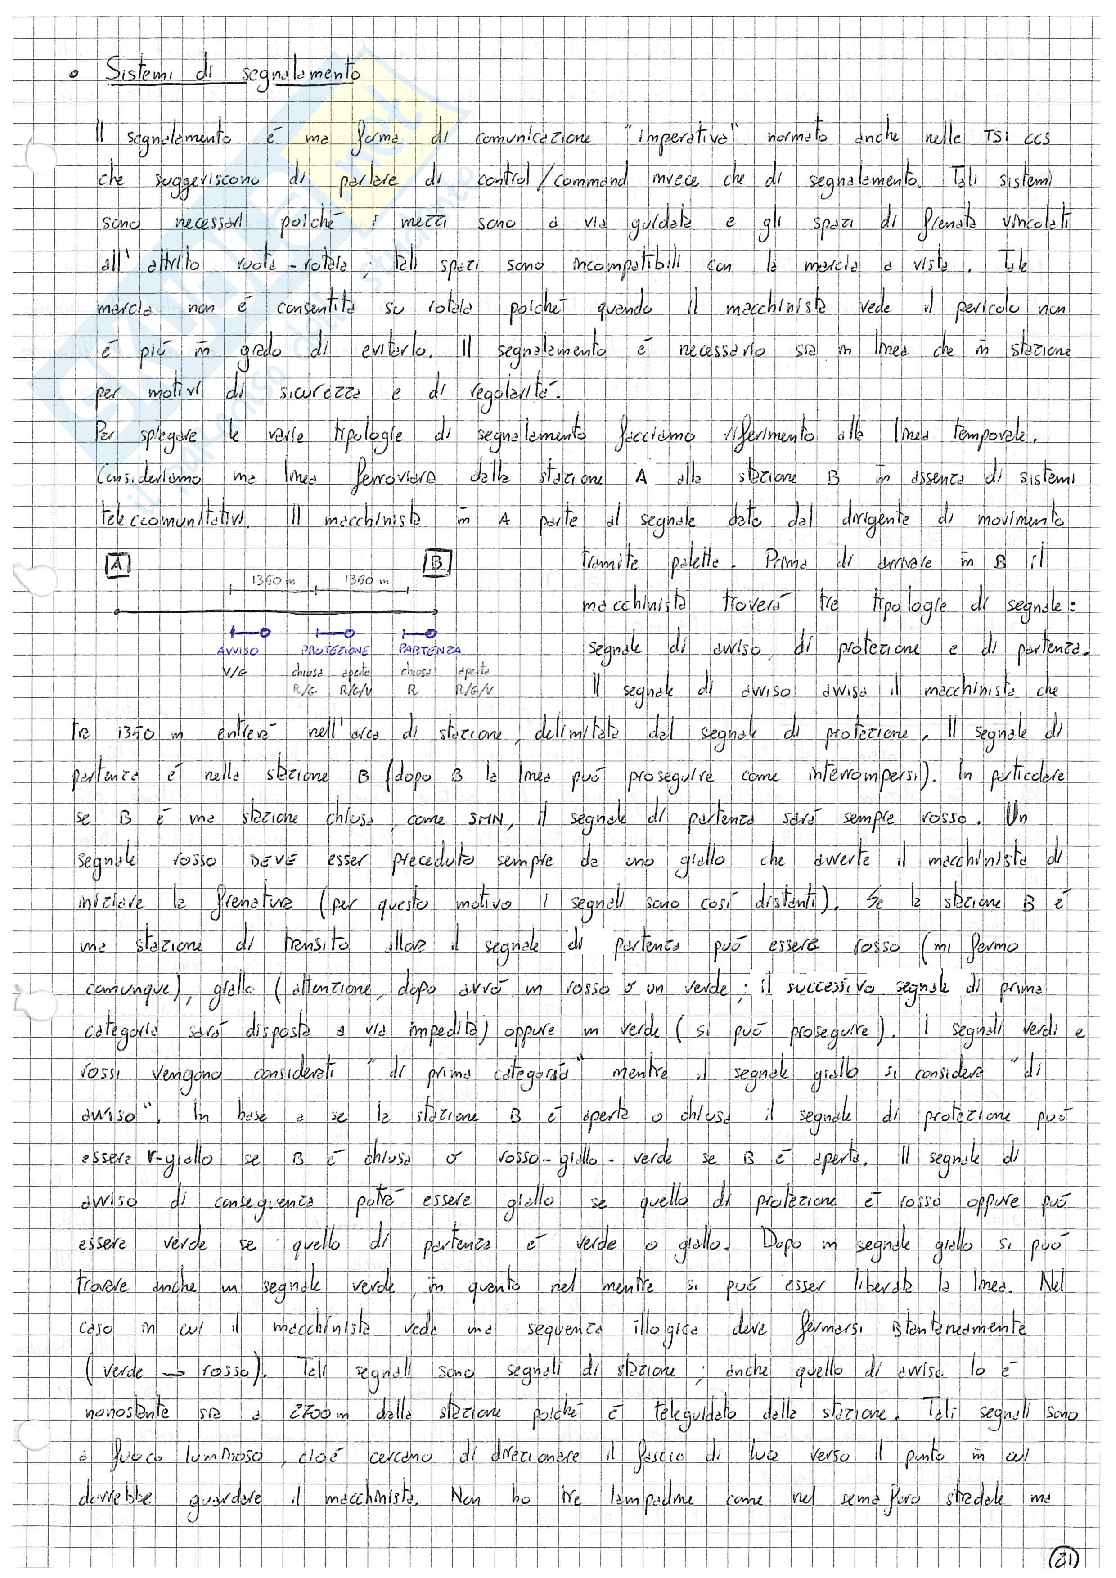 • Sistemi di segnalamento
Il segnalamento è una forma di comunicazione "imperativa" normato anche nelle TSI CCS
che suggeriscono di parlare di control/command invece che di segnalamento. Tali sistemi
sono necessari poiché i mezzi sono a via guidata e gli spazi di frenata vincolati
all'attrito ruota-rotaia; tali spazi sono incompatibili con la marcia a vista. Tale
marcia non è consentita su rotaia poiché quando il macchinista vede il pericolo non
è più in grado di evitarlo. Il segnalamento è necessario sia in linea che in stazione
per motivi di sicurezza e di regolarità.
Per spiegare le varie tipologie di segnalamento facciamo riferimento alla linea temporale.
Consideriamo una linea ferroviaria dalla stazione A alla stazione B in assenza di sistemi
telecomunitativi. Il macchinista in A parte al segnale dato dal dirigente di movimento
tramite palette. Prima di arrivare in B il
macchinista troverà tre tipologie di segnale:
segnale di avviso, di protezione e di partenza.
Il segnale di avviso avvisa il macchinista che
A B
1350 m 1350 m
AVVISO PROTEZIONE PARTENZA
V/G chiusa aperta chiusa aperta
R/G R/G/V R R/G/V
tra 1350 m entrerà nell'area di stazione, delimitata dal segnale di protezione. Il segnale di
partenza è nella stazione B (dopo B la linea può proseguire come interrompersi). In particolare
se B è una stazione chiusa, come SMN, il segnale di partenza sarà sempre rosso. Un
segnale rosso DEVE esser preceduto sempre da uno giallo che avverte il macchinista di
iniziare la frenatura (per questo motivo i segnali sono così distanti). Se la stazione B è
una stazione di transito allora il segnale di partenza può essere rosso (mi fermo
comunque), giallo (attenzione, dopo avrò un rosso o un verde; il successivo segnale di prima
categoria sarà disposto a via impedita) oppure un verde (si può proseguire). I segnali verdi e
rossi vengono considerati "di prima categoria" mentre il segnale giallo si considera "di
avviso". In base a se la stazione B è aperta o chiusa il segnale di protezione può
essere r-giallo se B è chiusa o rosso-giallo-verde se B è aperta. Il segnale di
avviso di conseguenza potrà essere giallo se quello di protezione è rosso oppure può
essere verde se quello di partenza è verde o giallo. Dopo un segnale giallo si può
trovare anche un segnale verde, in quanto nel mentre si può esser liberata la linea. Nel
caso in cui il macchinista veda una sequenza illogica deve fermarsi istantaneamente
(verde → rosso). Tali segnali sono segnali di stazione; anche quello di avviso lo è
nonostante sia a 2700m dalla stazione poiché è teleguidato dalla stazione. Tali segnali sono
a fuoco luminoso, cioè cercano di direzionare il fascio di luce verso il punto in cui
dovrebbe guardare il macchinista. Non ho tre lampadine come nel semaforo stradale ma
21